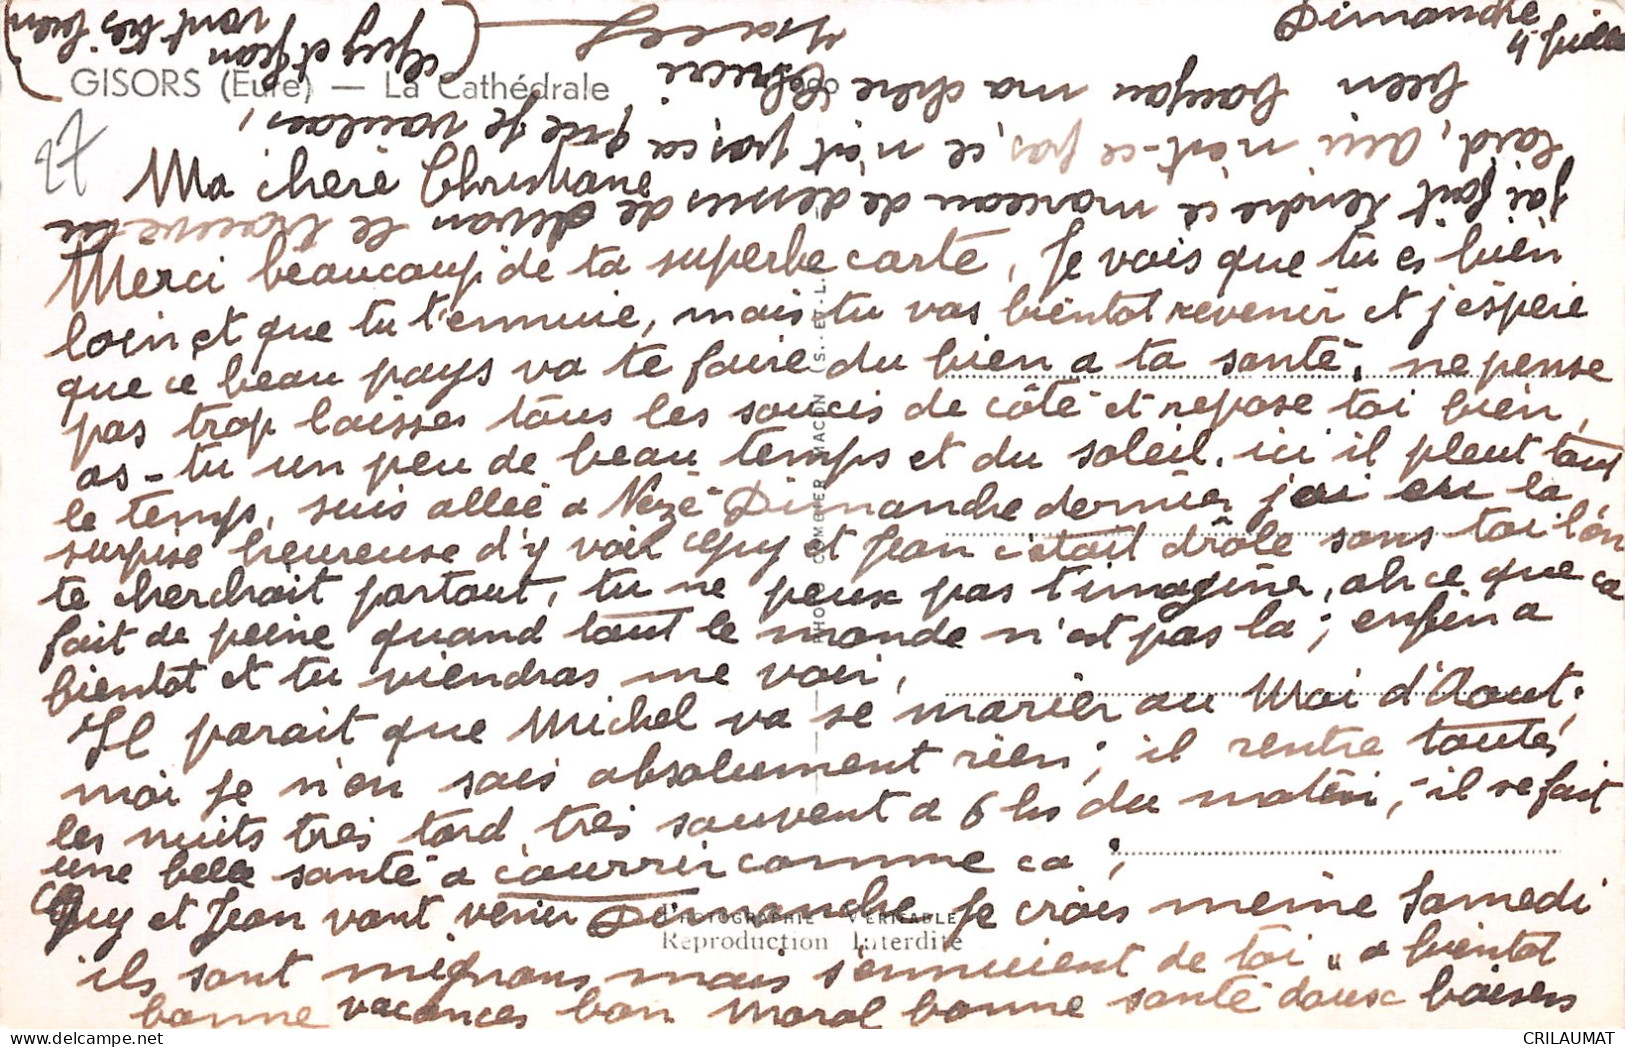 Dimanche
4 Juillet
GISORS (Eure) — La Cathédrale
27
Ma chère Christiane
Merci beaucoup de ta superbe carte, Je vois que tu es bien
loin et que tu t'ennuie, mais tu vas bientot revenir et j'espère
que ce beau pays va te faire du bien a ta santé, ne pense
pas trop laisses tous les soucis de côté et repose toi bien,
as-tu un peu de beau temps et du soleil. ici il pleut tout
le temps, suis allée a Nézé Dimanche dernier j'ai eu la
surprise heureuse d'y voir Guy et Jean c'était drôle sans toi l'on
te cherchait partout, tu ne peux pas t'imaginer, ah ce que ca
fait de peine quand tout le monde n'est pas la; enfin a
bientot et tu viendras me voir,
Il parait que Michel va se marier au Moi d'Aout;
moi je n'en sais absolument rien; il rentre toutes
les nuits tres tard, tres souvent a 6 hs du matin, il se fait
une belle santé a courrir comme ca;
Guy et Jean vont venir Dimanche je crois meme Samedi
ils sont mignons mais s'ennuient de toi, a bientot
bonne vacances bon moral bonne santé doux baisers
j'ai fait tendre ce morceau de dessus de divan je trouve ca
laid, oui n'est-ce pas, ce n'est pas ca que je voulais,
bien bonjour ma chère
Guy et Jean
vont très bien
PHOTO COMBIER MACON (S.-ET-L.)
PHOTOGRAPHIE VÉRITABLE
Reproduction Interdite
CRILAUMAT